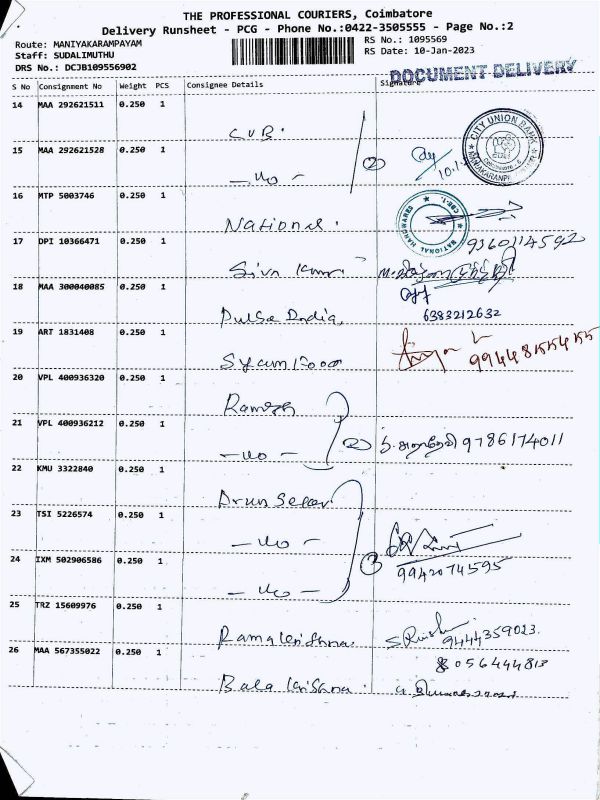 THE PROFESSIONAL COURIERS, Coimbatore
Delivery Runsheet - PCG - Phone No.:0422-3505555 - Page No.:2
Route: MANIYAKARAMPAYAM
Staff: SUDALIMUTHU
DRS No.: DCJB109556902
RS No.: 1095569
RS Date: 10-Jan-2023
DOCUMENT DELIVERY
S No Consignment No Weight PCS Consignee Details Signature
14 MAA 292621511 0.250 1
CUB.
CITY UNION BANK
15 MAA 292621528 0.250 1
2
16 MTP 5003746 0.250 1
National.
NATIONAL HARDWARES
17 DPI 10366471 0.250 1
9360114592
Siva Kumar
18 MAA 300040085 0.250 1
Pulse India,
6383212632
19 ART 1831408 0.250 1
20 VPL 400936320 0.250 1
Ramesh
21 VPL 400936212 0.250 1
2 9786174011
22 KMU 3322840 0.250 1
Arun Sekar
23 TSI 5226574 0.250 1
24 IXM 502906586 0.250 1
3 9942074595
25 TRZ 15609976 0.250 1
Ramakrishna.
9444359023.
26 MAA 567355022 0.250 1
8056444813
Bala krishna.